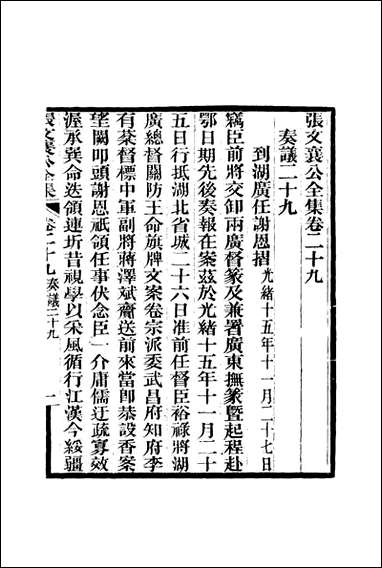 張文襄公全集卷二十九
奏議二十九
到湖廣任謝恩摺光緒十五年十一月二十七日
竊臣前將交卸兩廣督篆及兼署廣東撫篆暨起程赴
鄂日期先後奏報在案茲於光緒十五年十一月二十
五日行抵湖北省城二十六日准前任督臣裕祿將湖
廣總督關防王命旗牌文案卷宗派委武昌府知府李
有棻督標中軍副將蔣澤斌齎送前來當卽恭設香案
望闕叩頭謝恩祇領任事伏念臣一介庸儒迂疏寡效
渥承巽命迭領連圻昔視學以采風循行江漢今綏疆
張文襄公全集 卷二十九 奏議二十九 一